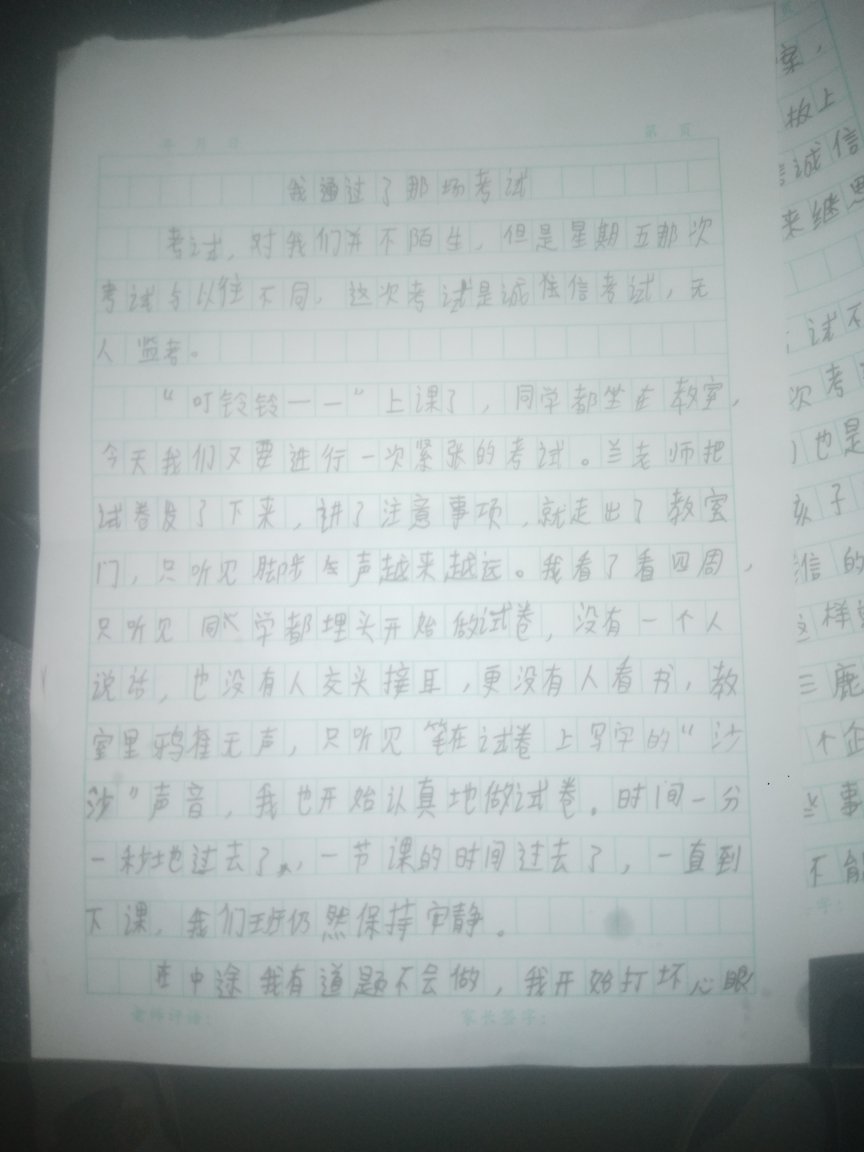 年 月 日
第 页
我通过了那场考试
考试,对我们并不陌生,但是星期五那次
考试与以往不同,这次考试是诚信考试,无
人监考。
“叮铃铃——”上课了,同学都坐在教室,
今天我们又要进行一次紧张的考试。兰老师把
试卷发了下来,讲了注意事项,就走出了教室
门,只听见脚步声越来越远。我看了看四周,
只听见同学都埋头开始做试卷,没有一个人
说话,也没有人交头接耳,更没有人看书,教
室里鸦雀无声,只听见笔在试卷上写字的“沙
沙”声音,我也开始认真地做试卷。时间一分
一秒地过去了,一节课的时间过去了,一直到
下课,我们班仍然保持安静。
在中途我有道题不会做,我开始打坏心眼
老师评语:
家长签字:
案,
板上
诚信
来继思
试不
次考
也是
孩子
信的
这样
三鹿
个企
些事
不能
字: